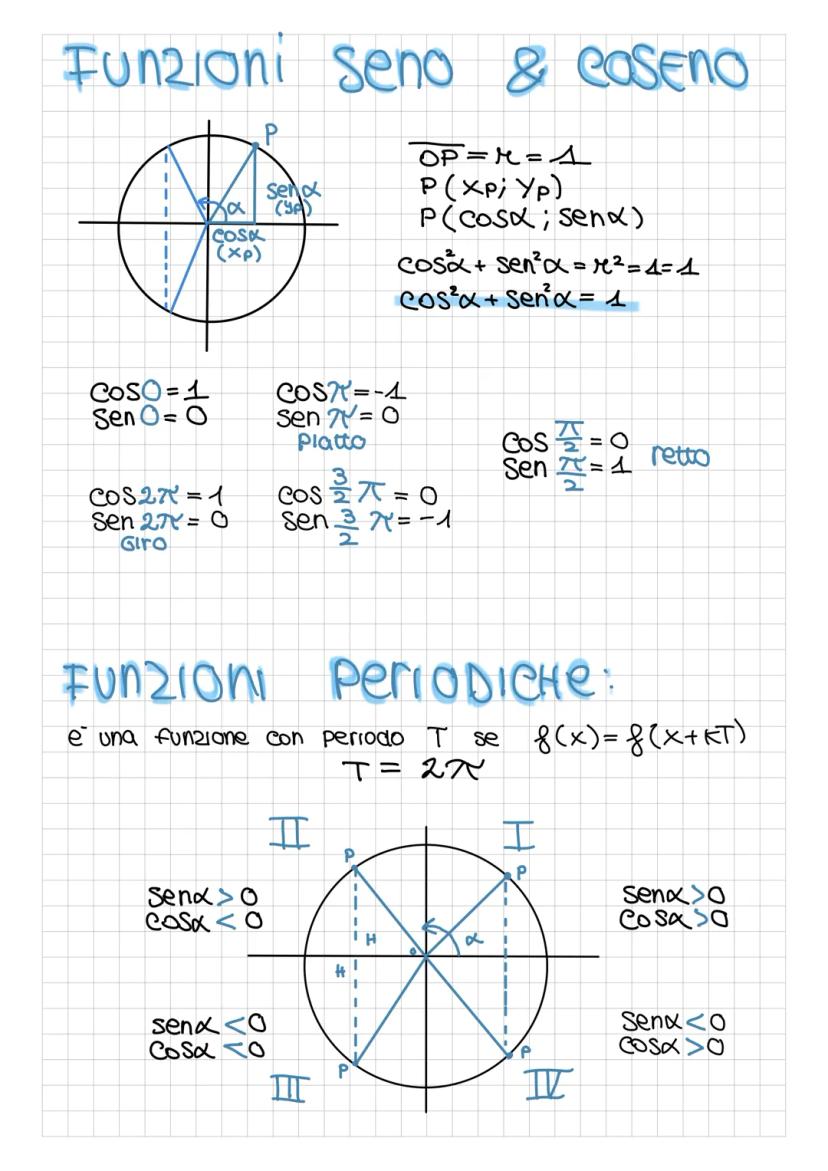 Funzioni seno & coseno
P
α
senα
(yP)
cosα
(xP)
OP = r = 1
P(xP; yP)
P(cosα; senα)
cos²α + sen²α = r² = 1 = 1
cos²α + sen²α = 1
cos0 = 1
sen0 = 0
cosπ = -1
senπ = 0
Piatto
cos π/2 = 0
sen π/2 = 1
retto
cos2π = 1
sen2π = 0
Giro
cos 3/2 π = 0
sen 3/2 π = -1
Funzioni Periodiche:
è una funzione con periodo T se f(x) = f(x+kT)
T = 2π
II
I
P
P
senα > 0
cosα < 0
senα > 0
cosα > 0
H
α
o
H
senα < 0
cosα < 0
senα < 0
cosα > 0
P
P
III
IV